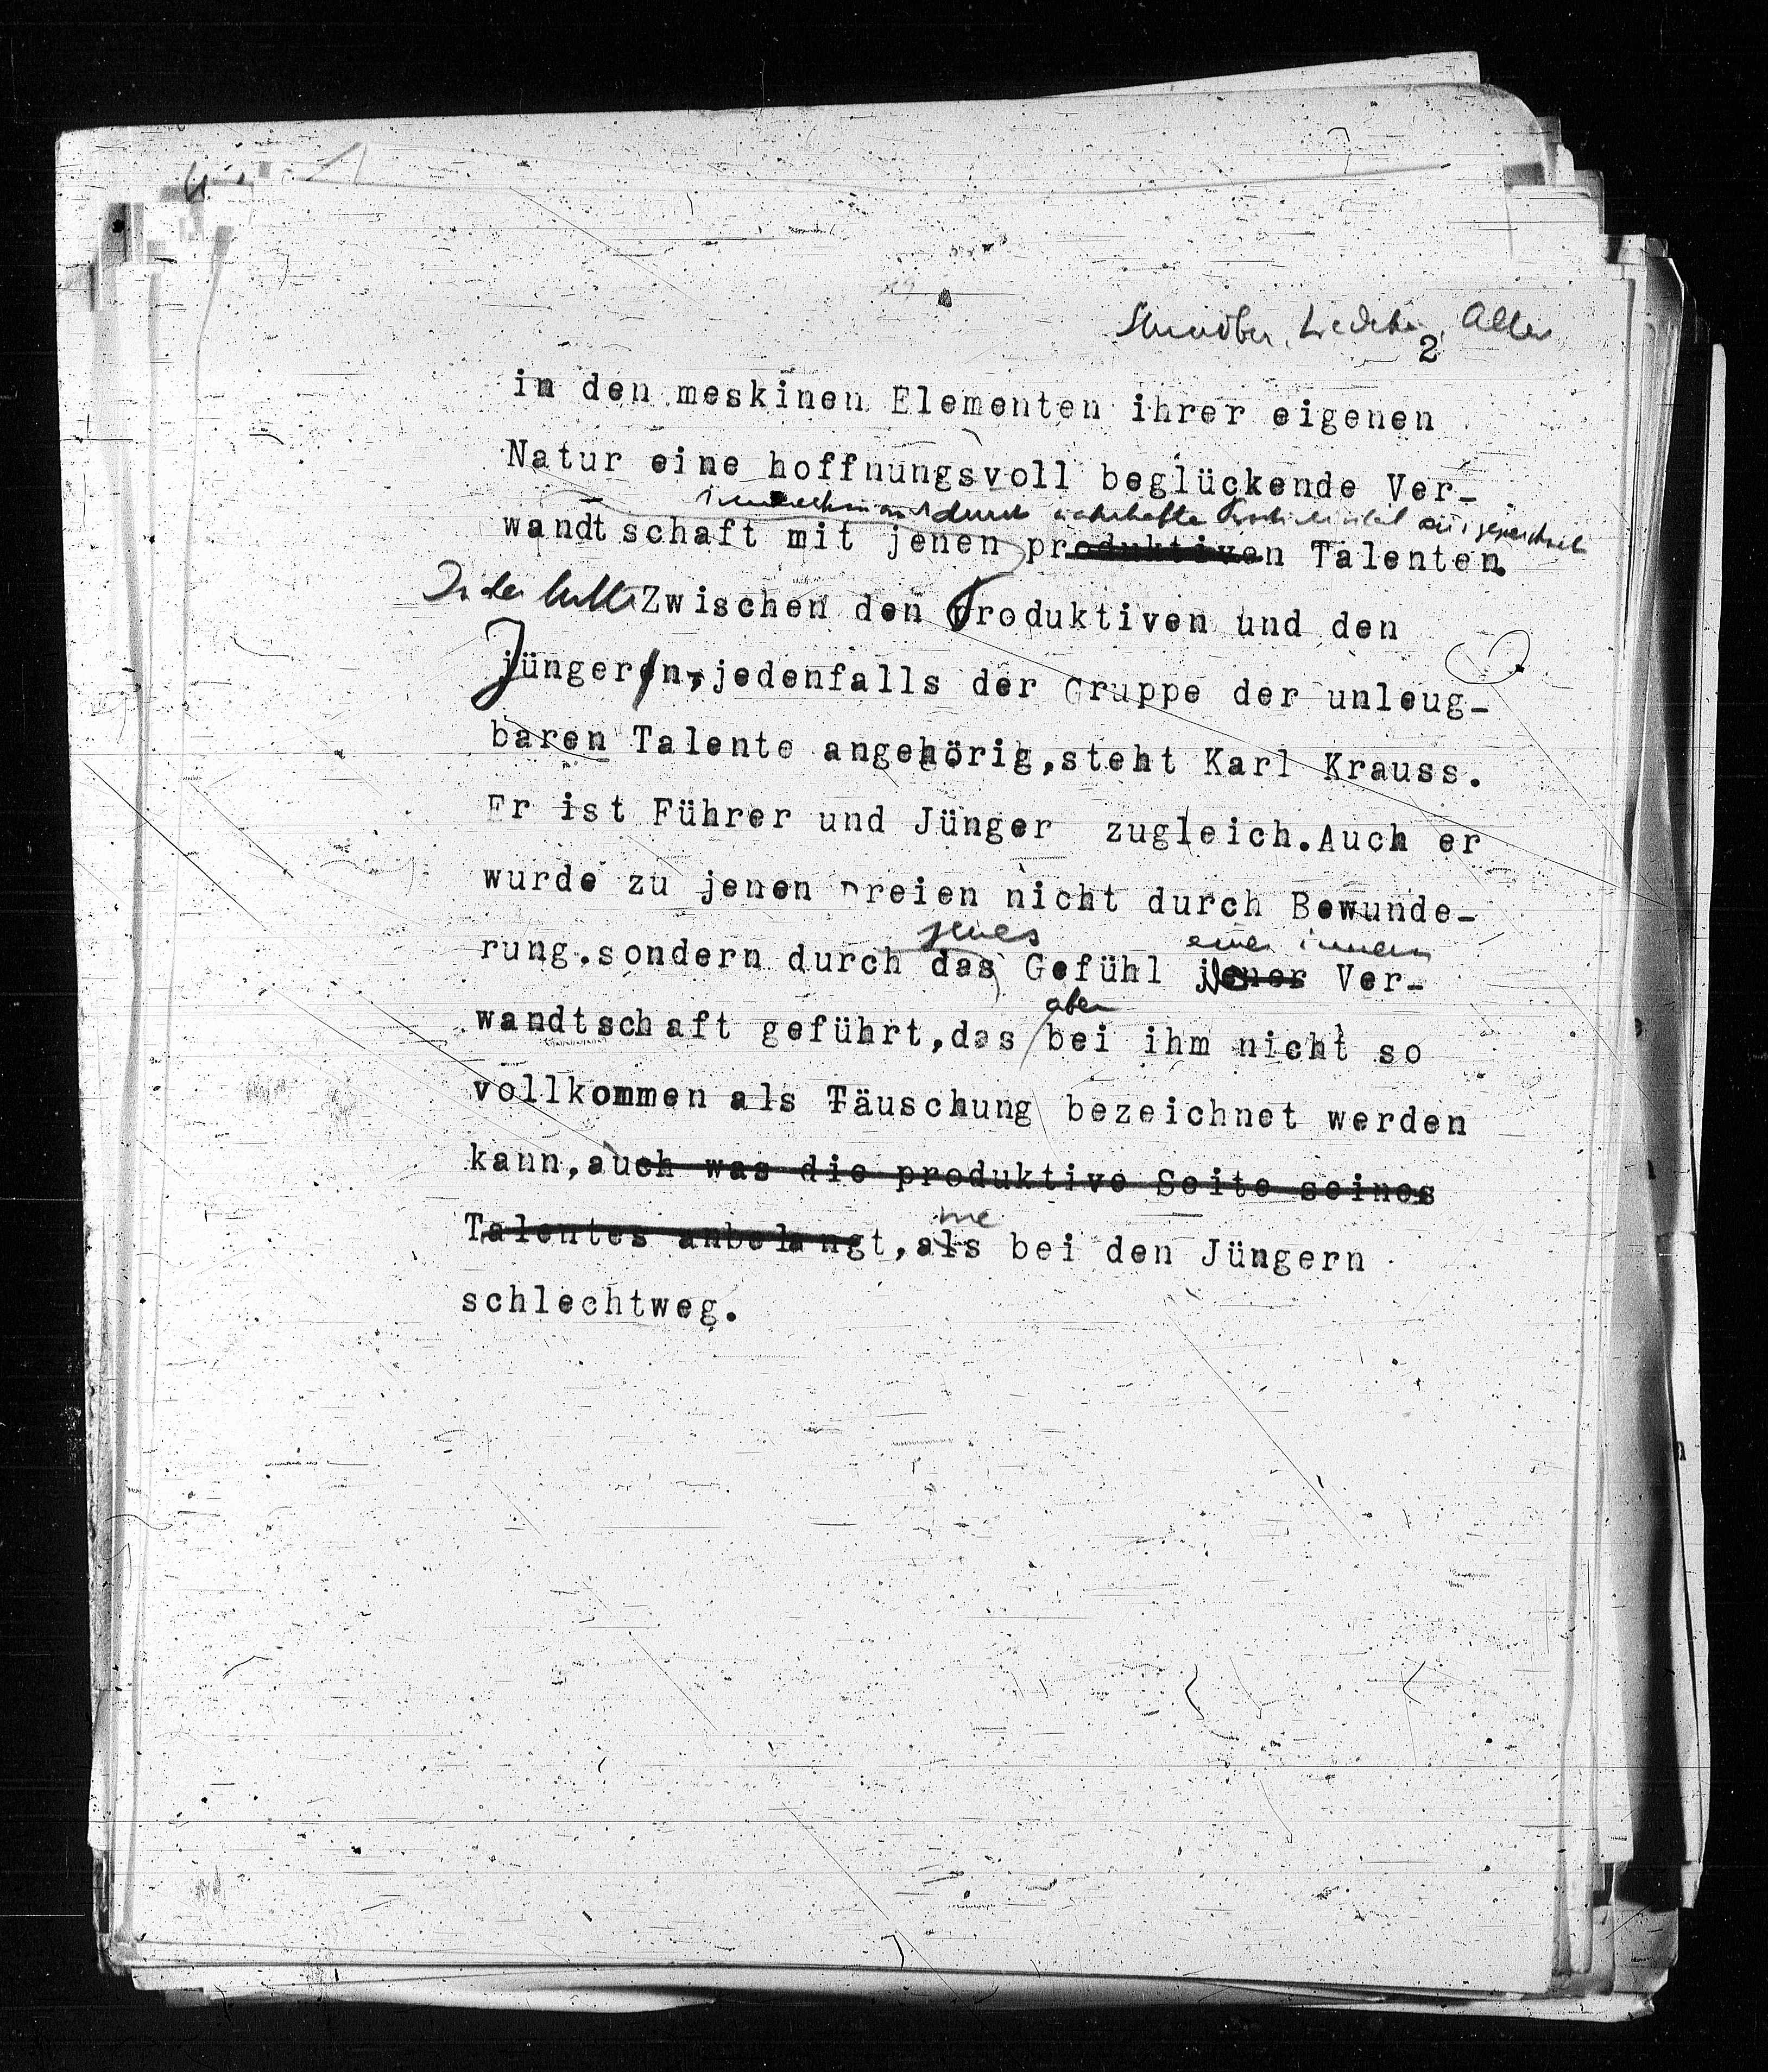 2
in den meskinen Elementen ihrer eigenen
Natur eine hoffnungsvoll beglückende Ver-
durch wahrhafte Produktivität ausgezeichneten
wandtschaft mit jenen produktiven Talenten.
In der Mitte Zwischen den Produktiven und den
Jüngern, jedenfalls der Gruppe der unleug-
baren Talente angehörig, steht Karl Krauss.
Er ist Führer und Jünger zugleich. Auch er
wurde zu jenen Dreien nicht durch Bewunde-
jenes einer innern
rung. sondern durch das Gefühl jener Ver-
aber
wandtschaft geführt, das bei ihm nicht so
vollkommen als Täuschung bezeichnet werden
kann, auch was die produktive Seite seines
wie
Talentes anbelangt, als bei den Jüngern
schlechtweg.